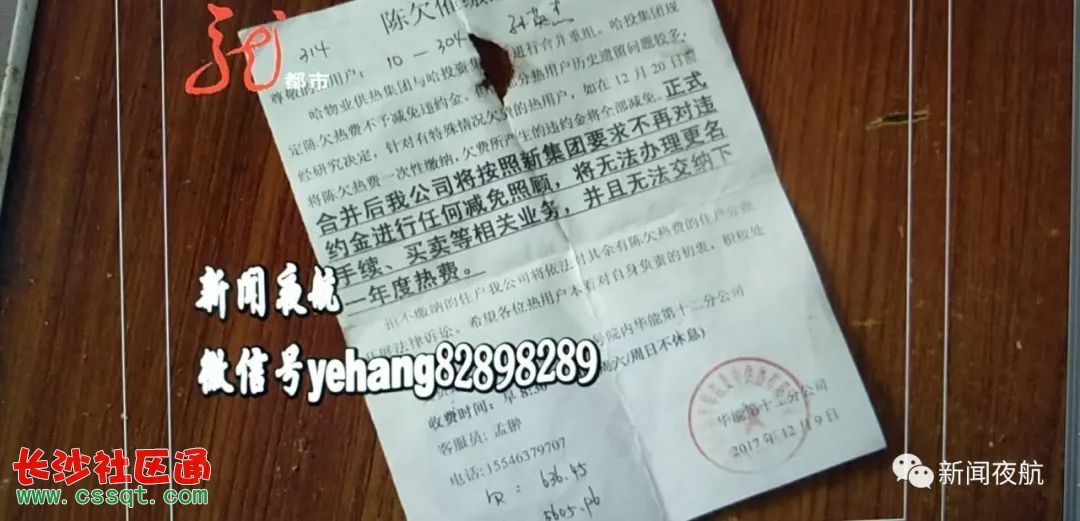 陈欠催缴
314
10-304
都市
尊敬的 用户:
哈物业供热集团与哈投资集 进行合并重组。哈投集团现
定陈欠热费不予减免违约金。 分热用户历史遗留问题较多,
经研究决定,针对有特殊情况欠 费的热用户,如在12月20日前
将陈欠热费一次性缴纳,欠费所产生的违约金将全部减免。正式
合并后我公司将按照新集团要求不再对违
约金进行任何减免照顾,将无法办理更名
手续、买卖等相关业务,并且无法交纳下
一年度热费。
拒不缴纳的住户我公司将依法对其余有陈欠热费的住户分批
法律诉讼。希望各位热用户本着对自身负责的初衷,积极处
院内华能第十二分公司
周六/周日不休息)
收费时间:早8:30
客服员:孟翀
电话:15546379707
华能第十二分公司
2017年12月9日
636.45
新闻夜航
微信号yehang82898289
长沙社区通
www.cssqt.com
新闻夜航